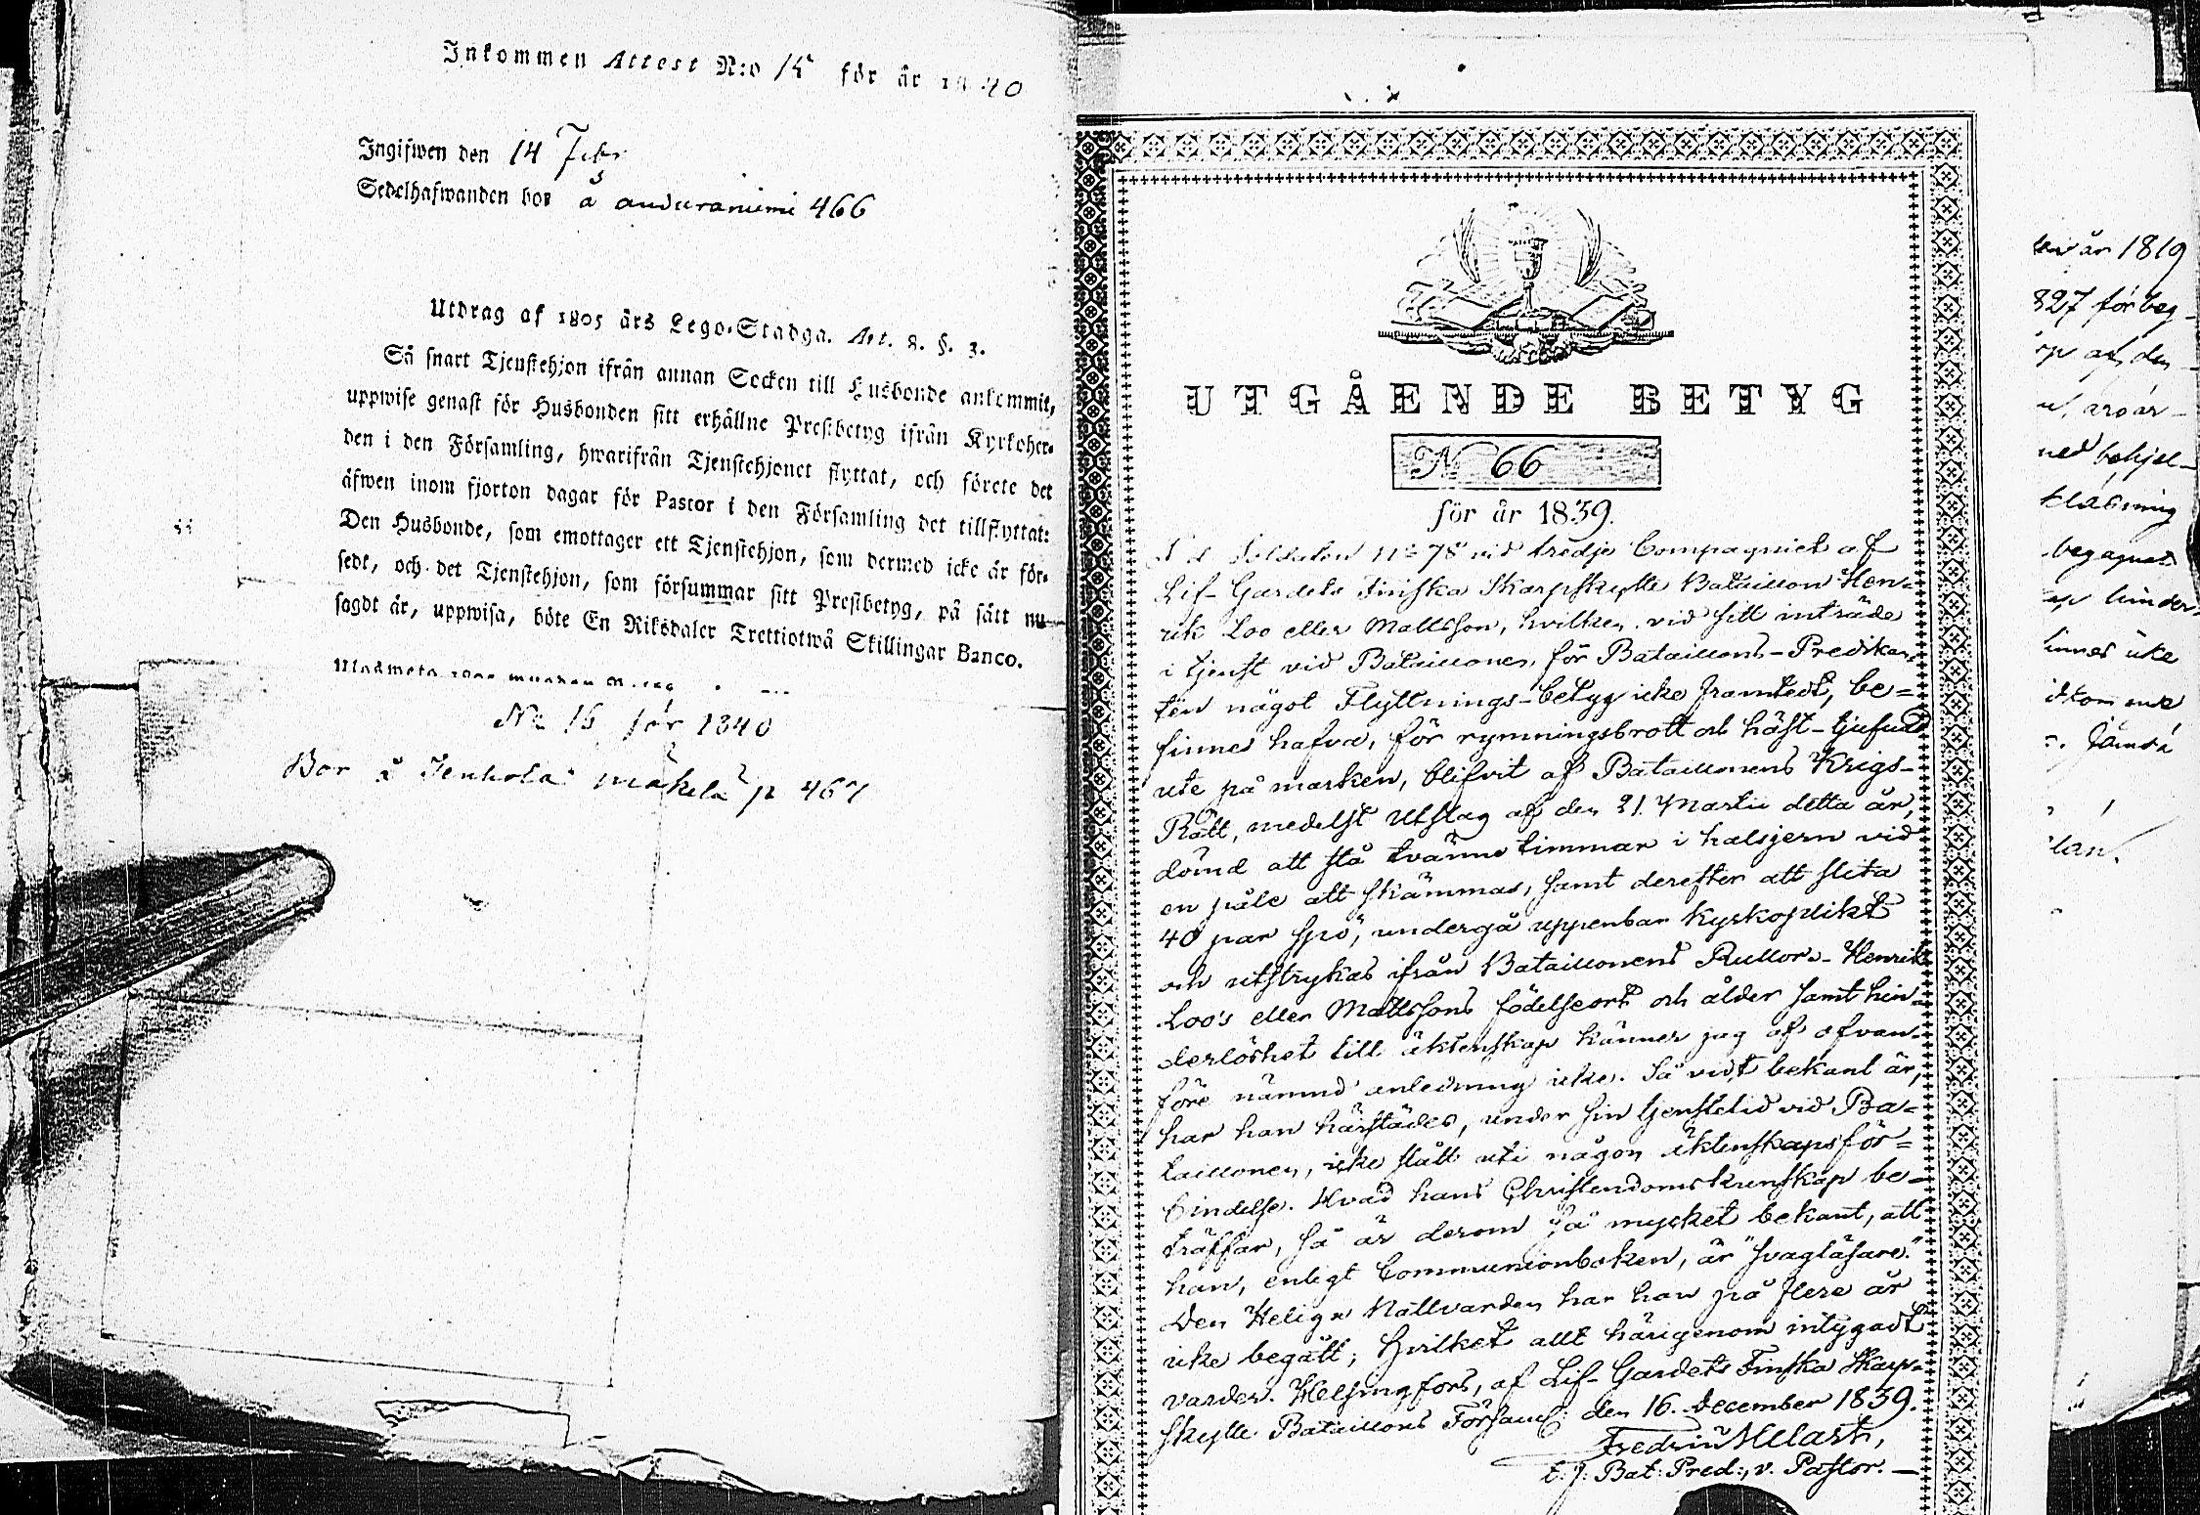 Inkommen Attest N:o 15 för år 1840
Ingifwen den 14 Febr
Sedelhafwanden bor å auduraniemi 466
Utdrag af 1805 års Lego-Stadga. Art. 8. §. 3.
Så snart Tjenstehjon ifrån annan Socken till Husbonde ankommit,
uppwise genast för Husbonden sitt erhållne Prestbetyg ifrån Kyrkoher-
den i den Församling, hwarifrån Tjenstehjonet flyttat, och förete det
äfwen inom fjorton dagar för Pastor i den Församling det tillflyttat:
Den Husbonde, som emottager ett Tjenstehjon, som dermed icke är för-
sedt, och det Tjenstehjon, som försummar sitt Prestbetyg, på sätt nu
sagdt är, uppwisa, böte En Riksdaler Trettiotwå Skillingar Banco.
No 15 för 1840
Bor å Jenhola mäkelä p 467
UTGÅENDE BETYG
N 66
för år 1839.
Soldaten No 78 vid tredje Compagniet af
Lif-Gardets Finska Skarpskytte Bataillon Hen-
rik Loo eller Mattsson, hvilken vid sitt inträde
i tjenst vid Bataillonen, för Bataillons-Predikan-
ten något Flyttnings-betyg icke framtedt, be=
finnes hafva, för rymningsbrott och häst-tjufnad
ute på marken, blifvit af Bataillonens Krigs-
Rätt, medelst Utslag af den 21. Martii detta år,
dömd att stå tvänne timmar i halsjern vid
en påle att skämmas, samt derefter att slita
40 par spö, undergå uppenbar Kyrkoplikt
och utstrykas ifrån Bataillonens Rullor. - Henrik
Loo's eller Mattssons födelseort och ålder samt hin-
derlöshet till äktenskap känner jag af ofvan-
före nämnd anledning icke. Så vidt bekant är,
har han härstädes, under sin tjenstetid vid Ba=
taillonen, icke stått uti någon äktenskapsför=
bindelse. Hvad hans Christendomskunskap be-
träffar, så är derom så mycket bekant, att
han, enligt Communionboken, är "svagläsare."
Den Heliga Nattvarden har han på flere år
icke begått; hvilket allt härigenom intygadt
varder. Helsingfors, af Lif-Gardets Finska Skarp-
skytte Bataillons Församl. den 16. December 1839.
t. f. Bat: Pred:, v. Pastor. —
år 1819
827 för beg-
af den
ned behjel-
begagnat
hinder-
finnes icke
Jämsä